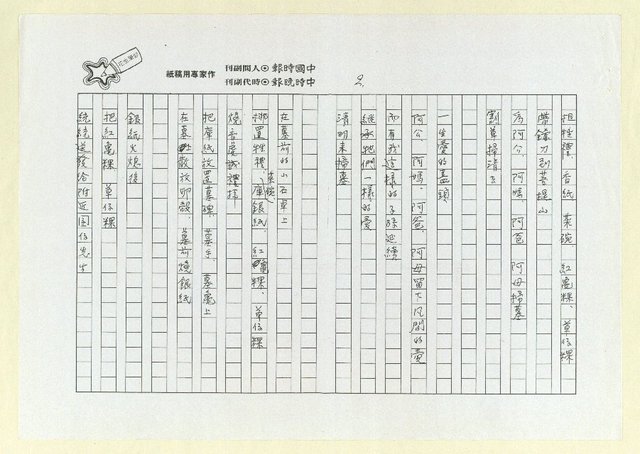 中國時報⊙人間副刊
中時晚報⊙時代副刊
作家專用稿紙
2.
担牲禮、香紙、菜碗、紅龜粿、草仔粿
帶鐮刀到菩提山
為阿公、阿嬤、阿爸、阿母掃墓
割草掃清
一生愛的盡頭
阿公、阿嬤、阿爸、阿母留下凡間的愛
而有我這樣的子孫延續
繼承祂們一樣的愛
清明來掃墓
在墓前的山石桌上
擺置牲禮、菜碗、庫銀紙、紅龜粿、草仔粿
燒香要誠禮拜
把草紙放置墓碑、墓手、墓龜上
在墓埕散放卵殼、墓前燒銀紙
銀紙火熄後
把紅龜粿、草仔粿
統統送發給附近囡仔先生